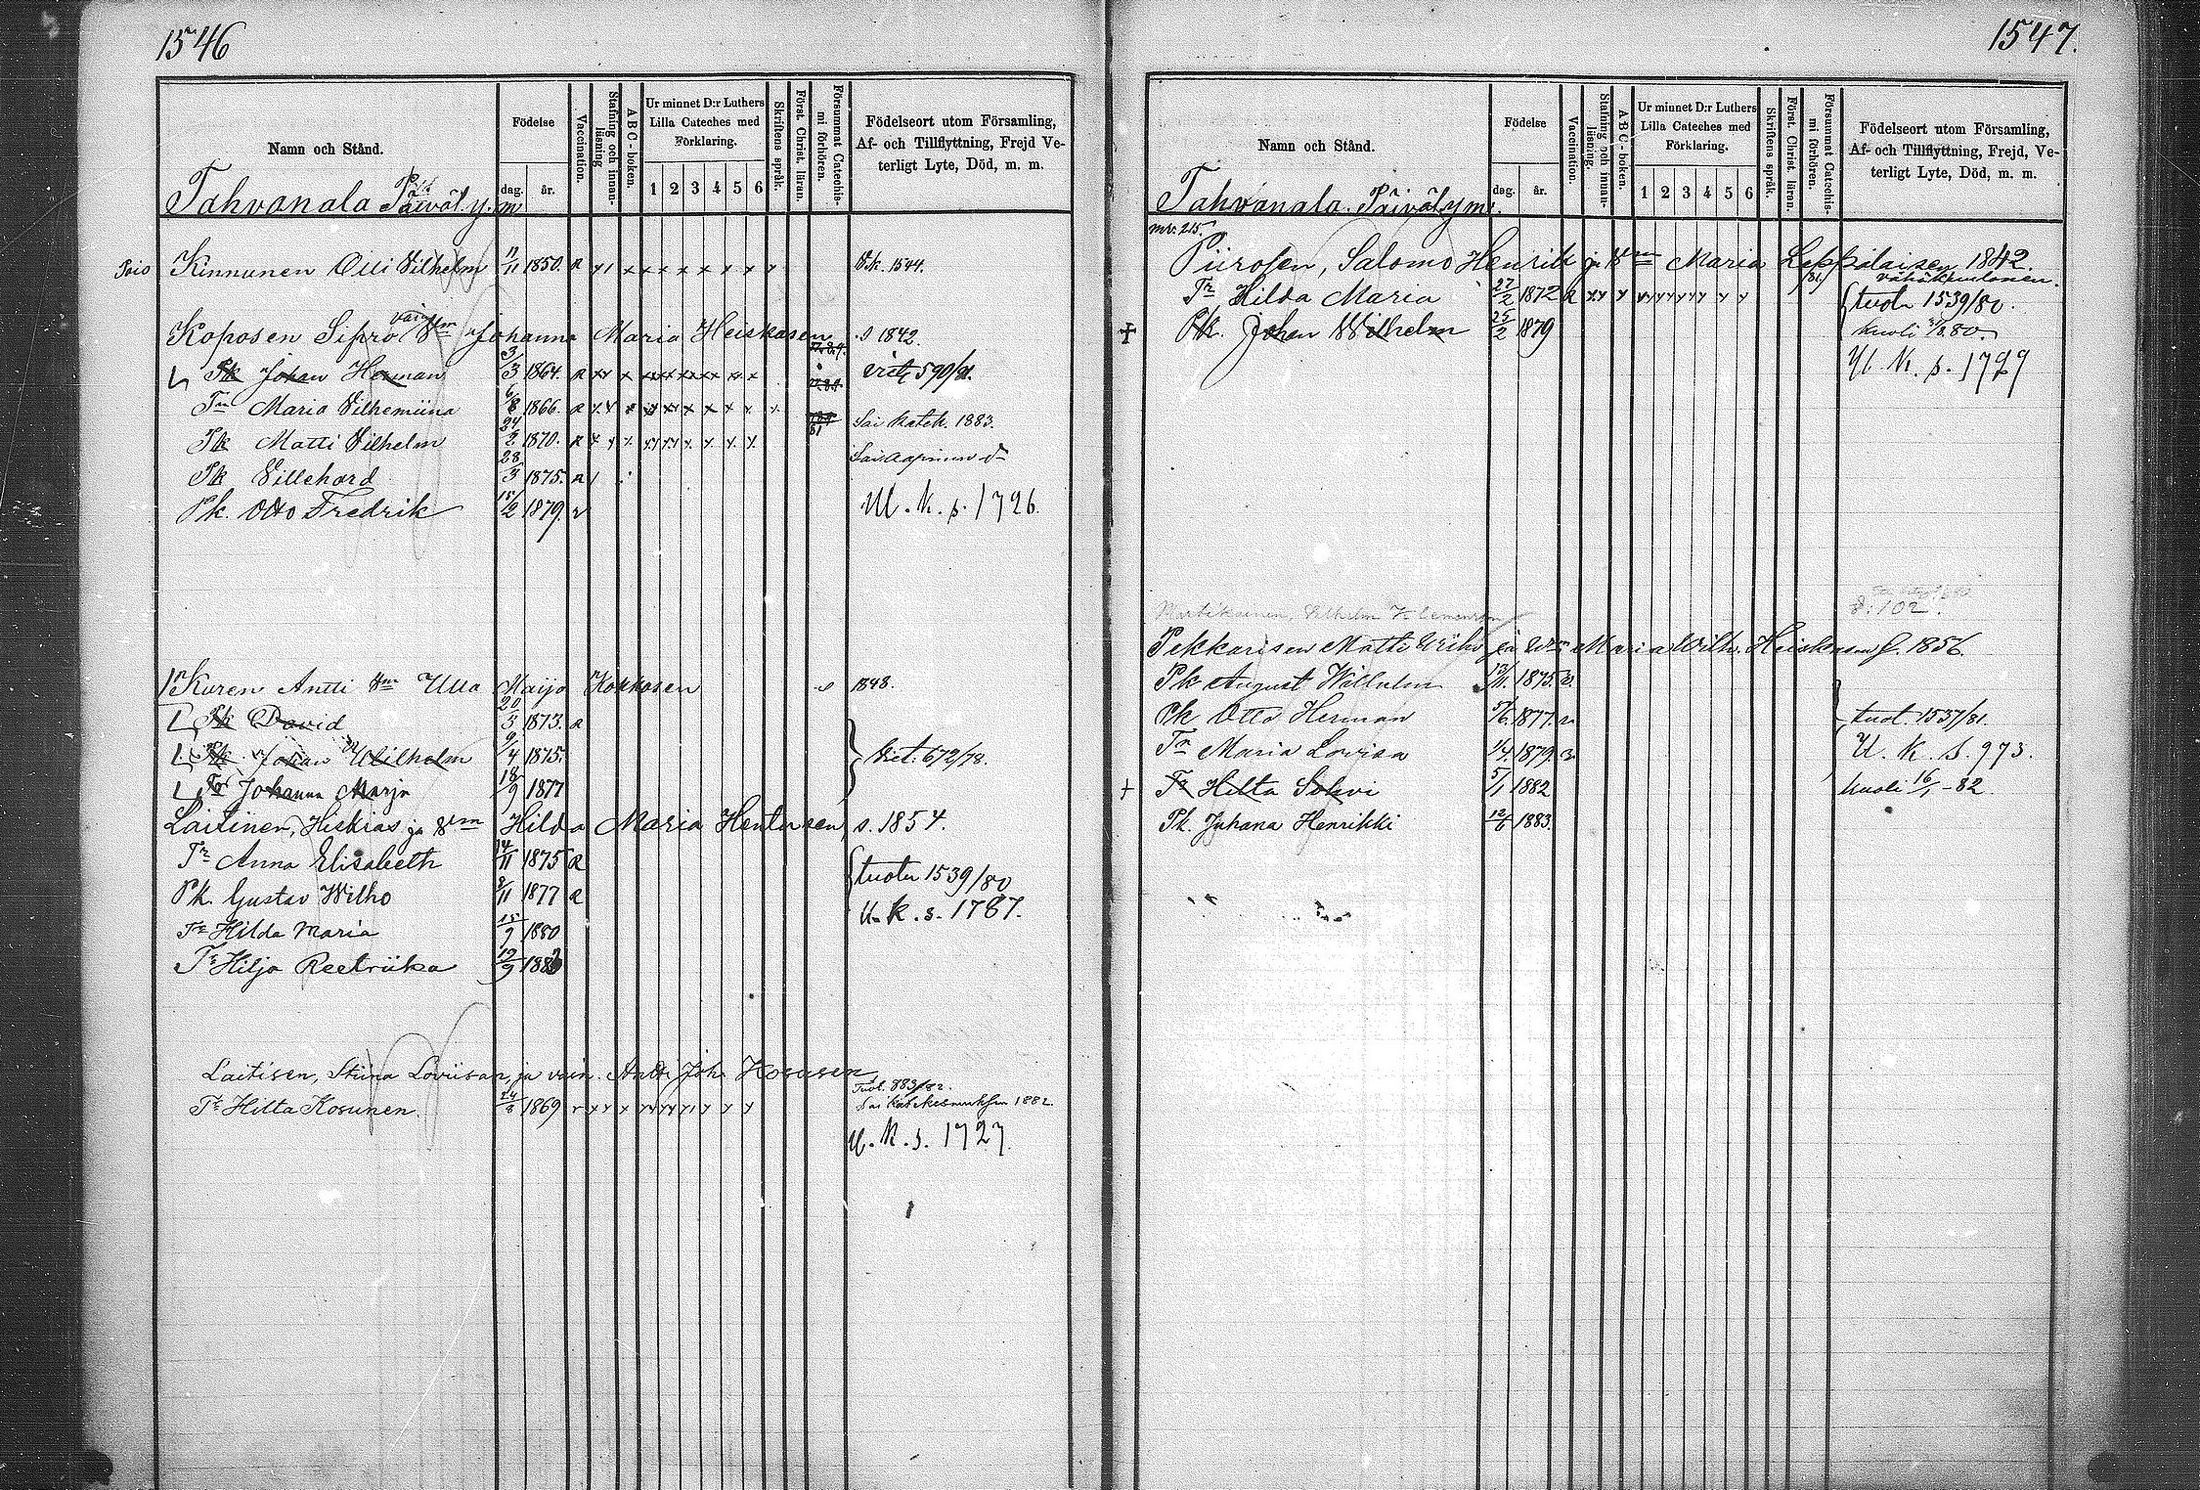 1546
Namn och Stånd.
Födelse
dag.
år.
Vaccination.
Stafning och innan-läsning
A B C - boken.
Ur minnet D:r Luthers
Lilla Cateches med
Förklaring.
1 2 3 4 5 6
Skriftens språk.
Först. Christ. läran.
Försummat Catechis-mi förhören.
Födelseort utom Församling,
Af- och Tillflyttning, Frejd Ve-
terligt Lyte, Död, m. m.
Tahvanala Päiväl. y. m
Pois Kinnunen Olli Vilhelm 11/11 1850. R
Koposen Sipro vain Vm Johanna Maria Heiskasen s 1842.
Pk Johan Herman 3/3 1864. R 590/81.
Tr Maria Vilhemiina 6/8 1866. R Sai katek. 1883.
Pk Matti Vilhelm 24/2 1870. R
Pk Villehard 28/3 1875. R
Pk. Otto Fredrik 15/2 1879.
U. k. s. 1726.
Kuren Antti Vm Ulla Maija Kokkosen 1848.
Pk David 20/5 1873. R
Pk Johan Wilhelm 9/4 1875.
672/78.
Tr Johanna Marja 18/9 1877
Laitinen, Hiskias ja Vm Hilda Maria Hentusen, s. 1854.
Tr Anna Elisabeth 14/11 1875 R
tuotu 1539/80
Pk. Gustav Wilho 2/11 1877 R
U. k. s. 1787.
Tr Hilda Maria 15/9 1880
Tr Hilja Reetriika 19/9 1883
Laitisen, Stiina Loviisan, ja vain. Antti Joh. Kosusen
Tuot. 883/82.
Tr Hilta Kosunen. 1869
U. K. s. 1727.
1547.
Namn och Stånd.
Födelse
dag.
år.
Vaccination.
Stafning och innan-läsning.
A B C - boken.
Ur minnet D:r Luthers
Lilla Cateches med
Förklaring.
1 2 3 4 5 6
Skriftens språk.
Först. Christ. läran.
Försummat Catechis-mi förhören.
Födelseort utom Församling,
Af- och Tillflyttning, Frejd, Ve-
terligt Lyte, Död, m. m.
Tahvanala Päiväl y m.
Piirosen, Salomo Henrik ja Vm Maria Leppälaisen 1842.
Tr Hilda Maria 27/2 1872 R
tuotu 1539/80.
Pk. Johan Wilhelm 25/2 1879
U. K. s. 1729
s: 102.
Pekkarisen Matti Eriks ja Wm Maria Wilh. Heiskasen s. 1856.
Pk August Willhelm 1875.
Pk Otto Herman 5/6 1877.
tuot. 1537/81.
Tr Maria Lovisa 1/4 1879.
U. k. s. 973.
Tr Hilta Sohvi 5/1 1882
kuoli 16/1 - 82.
Pk. Juhana Henrikki 12/6 1883.